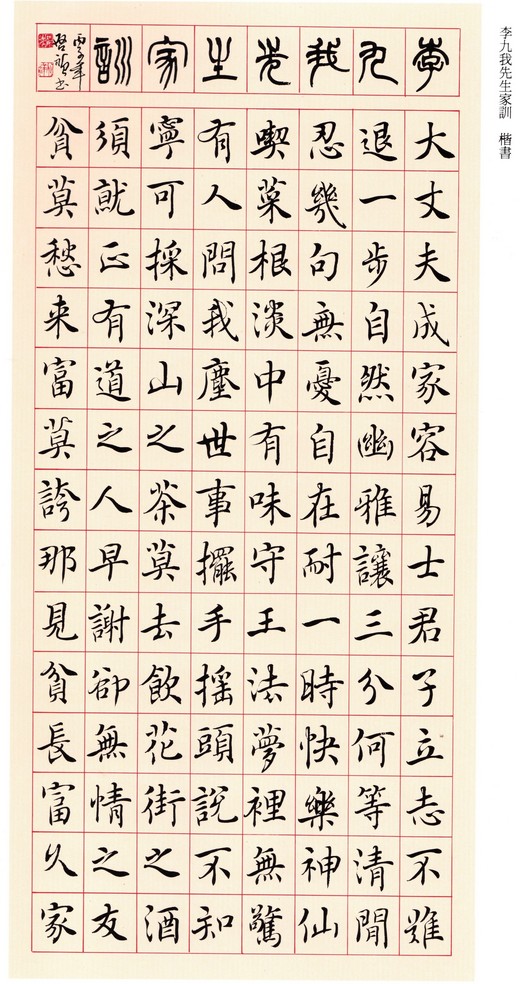 李九我先生家訓　楷書
李九我先生家訓
大丈夫成家容易士君子立志不難
退一步自然幽雅讓三分何等清閒
忍幾句無憂自在耐一時快樂神仙
喫菜根淡中有味守王法夢裡無驚
有人問我塵世事擺手搖頭說不知
寧可採深山之茶莫去飲花街之酒
須就正有道之人早謝卻無情之友
貧莫愁来富莫誇那見貧長富久家